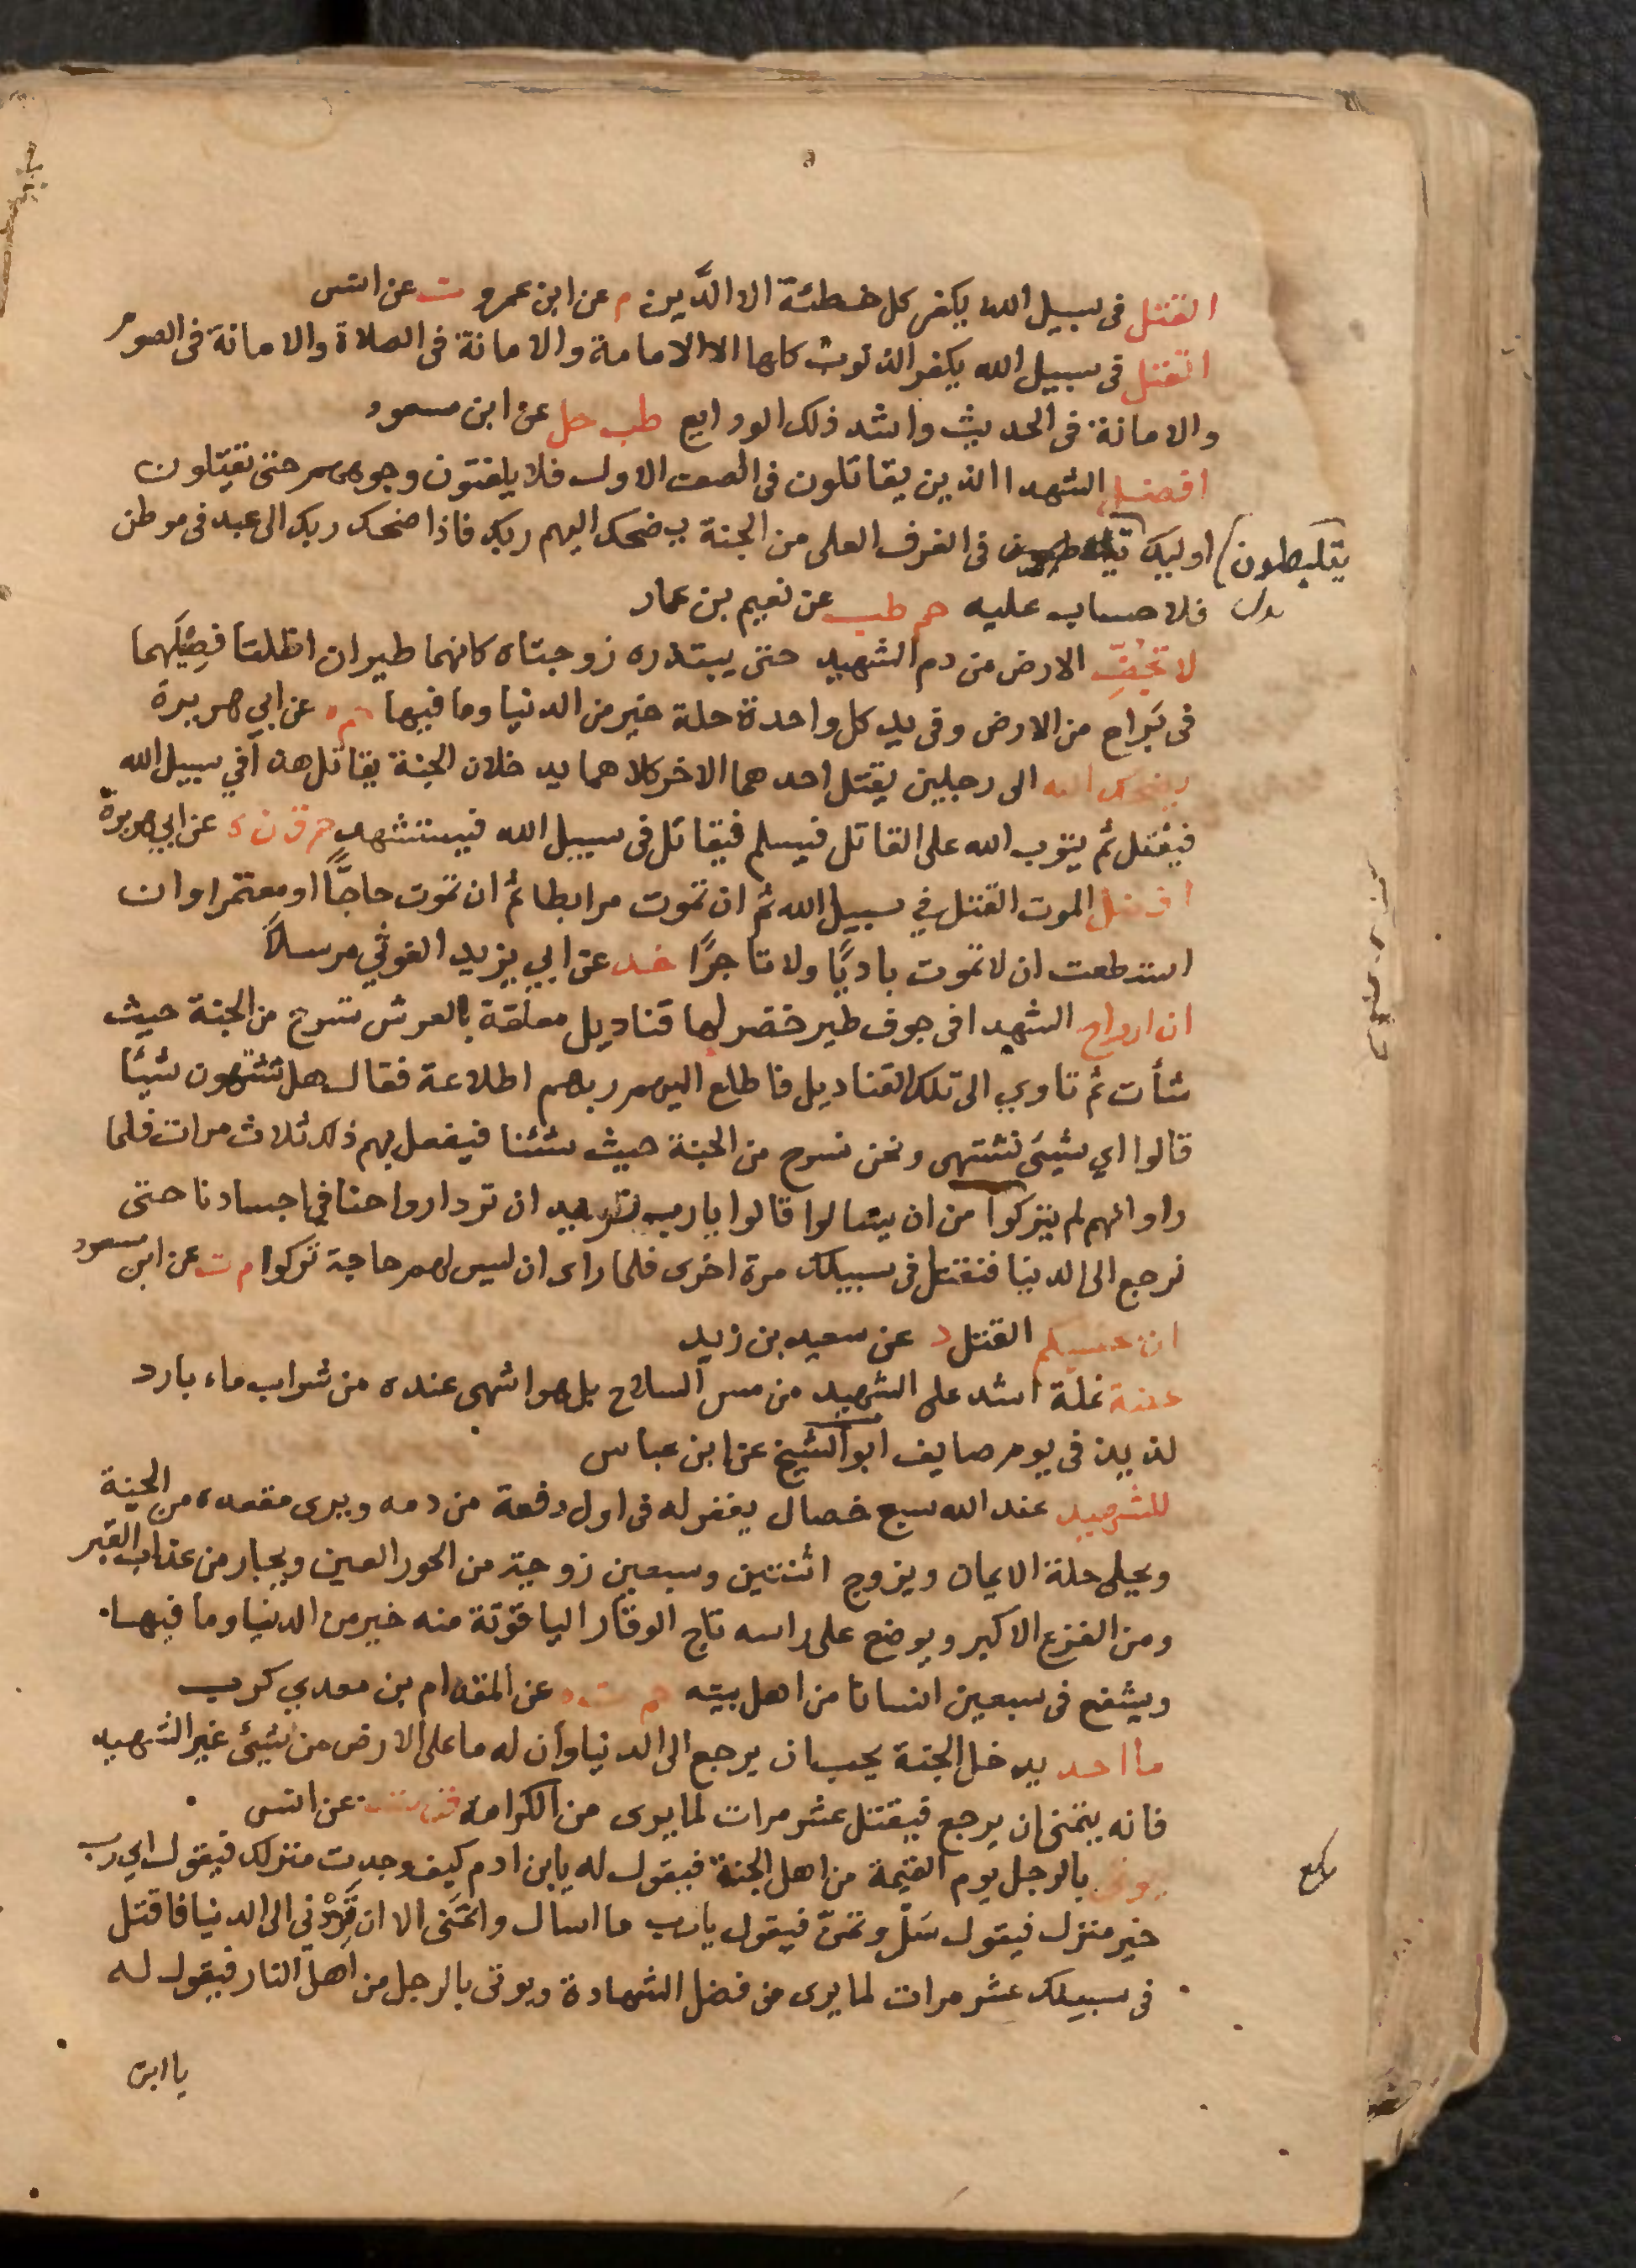 القتل فى سبيل الله يكفر كل خطئة الا الدَّين م عن ابن عمرو ت عن انس
القتل فى سبيل الله يكفر الذنوب كلها الا الامامة والامانة فى الصلاة والامانة فى الصوم
والامانة فى الحديث واشد ذلك الودايع طب حل عن ابن مسعود
افضل الشهدا الذين يقاتلون فى الصف الاول فلا يلفتون وجوههم حتى يقتلون
يتلبطون
اوليك فى الغرف العلى من الجنة يضحك اليهم ربك فاذا ضحك ربك الى عبد فى موطن
فلا حساب عليه حم طب عن نعيم بن عمار
لا تجفّ الارض من دم الشهيد حتى يبتدره زوجتاه كانهما طيران اظلتا فصيلهما
فى بَراح من الارض وفى يد كل واحدة حلة خير من الدنيا وما فيها حم ه عن ابي هريرة
يضحك الله الى رجلين يقتل احدهما الاخر كلاهما يدخلان الجنة يقاتل هذا في سبيل الله
فيقتل ثم يتوب الله على القاتل فيسلم فيقاتل فى سبيل الله فيستشهد حم ق ن ه عن ابي هريرة
افضل الموت القتل في سبيل الله ثم ان تموت مرابطا ثم ان تموت حاجًّا او معتمرا وان
استطعت ان لا تموت باديًا ولا تاجرًا عن ابي يزيد الغوثي مرسلاً
ان ارواح الشهدا فى جوف طير خضر لها قناديل معلقة بالعرش تسرح من الجنة حيث
شأت ثم تاوي الى تلك القناديل فاطلع اليهم ربهم اطلاعة فقال هل تشتهون شيئا
قالوا اي شيىء نشتهى ونحن نسرح من الجنة حيث شئنا فيفعل بهم ذلك ثلاث مرات فلما
راوا انهم لم يتركوا من ان يسالوا قالوا يا رب نريد ان ترد ارواحنا في اجسادنا حتى
نرجع الى الدنيا فنقتل فى سبيلك مرة اخرى فلما راى ان ليس لهم حاجة تركوا م ت عن ابن مسعود
ان حسبكم القتل د عن سعيد بن زيد
عضة نملة اشد على الشهيد من مس السلاح بل هو اشهى عنده من شراب ماء بارد
لذيذ فى يوم صايف ابو الشيخ عن ابن عباس
للشهيد عند الله سبع خصال يغفر له فى اول دفعة من دمه ويرى مقعده من الجنة
ويحلى حلة الايمان ويزوج اثنتين وسبعين زوجة من الحور العين ويجار من عذاب القبر
ومن الفزع الاكبر ويوضع على راسه تاج الوقار الياقوتة منه خير من الدنيا وما فيها
ويشفع فى سبعين انسانا من اهل بيته حم ت ه عن المقدام بن معدي كرب
ما احد يدخل الجنة يحب ان يرجع الى الدنيا وان له ما على الارض من شيىء غير الشهيد
فانه يتمنى ان يرجع فيقتل عشر مرات لما يرى من الكرامة ق ت عن انس
يوتى بالرجل يوم القيمة من اهل الجنة فيقول له يا ابن ادم كيف وجدت منزلك فيقول اي رب
خير منزل فيقول سَلْ وتمنّ فيقول يا رب ما اسال واتمَنى الا ان تَرُدّني الى الدنيا فاقتل
فى سبيلك عشر مرات لما يرى من فضل الشهادة ويوتى بالرجل من اهل النار فيقول له
يا ابن